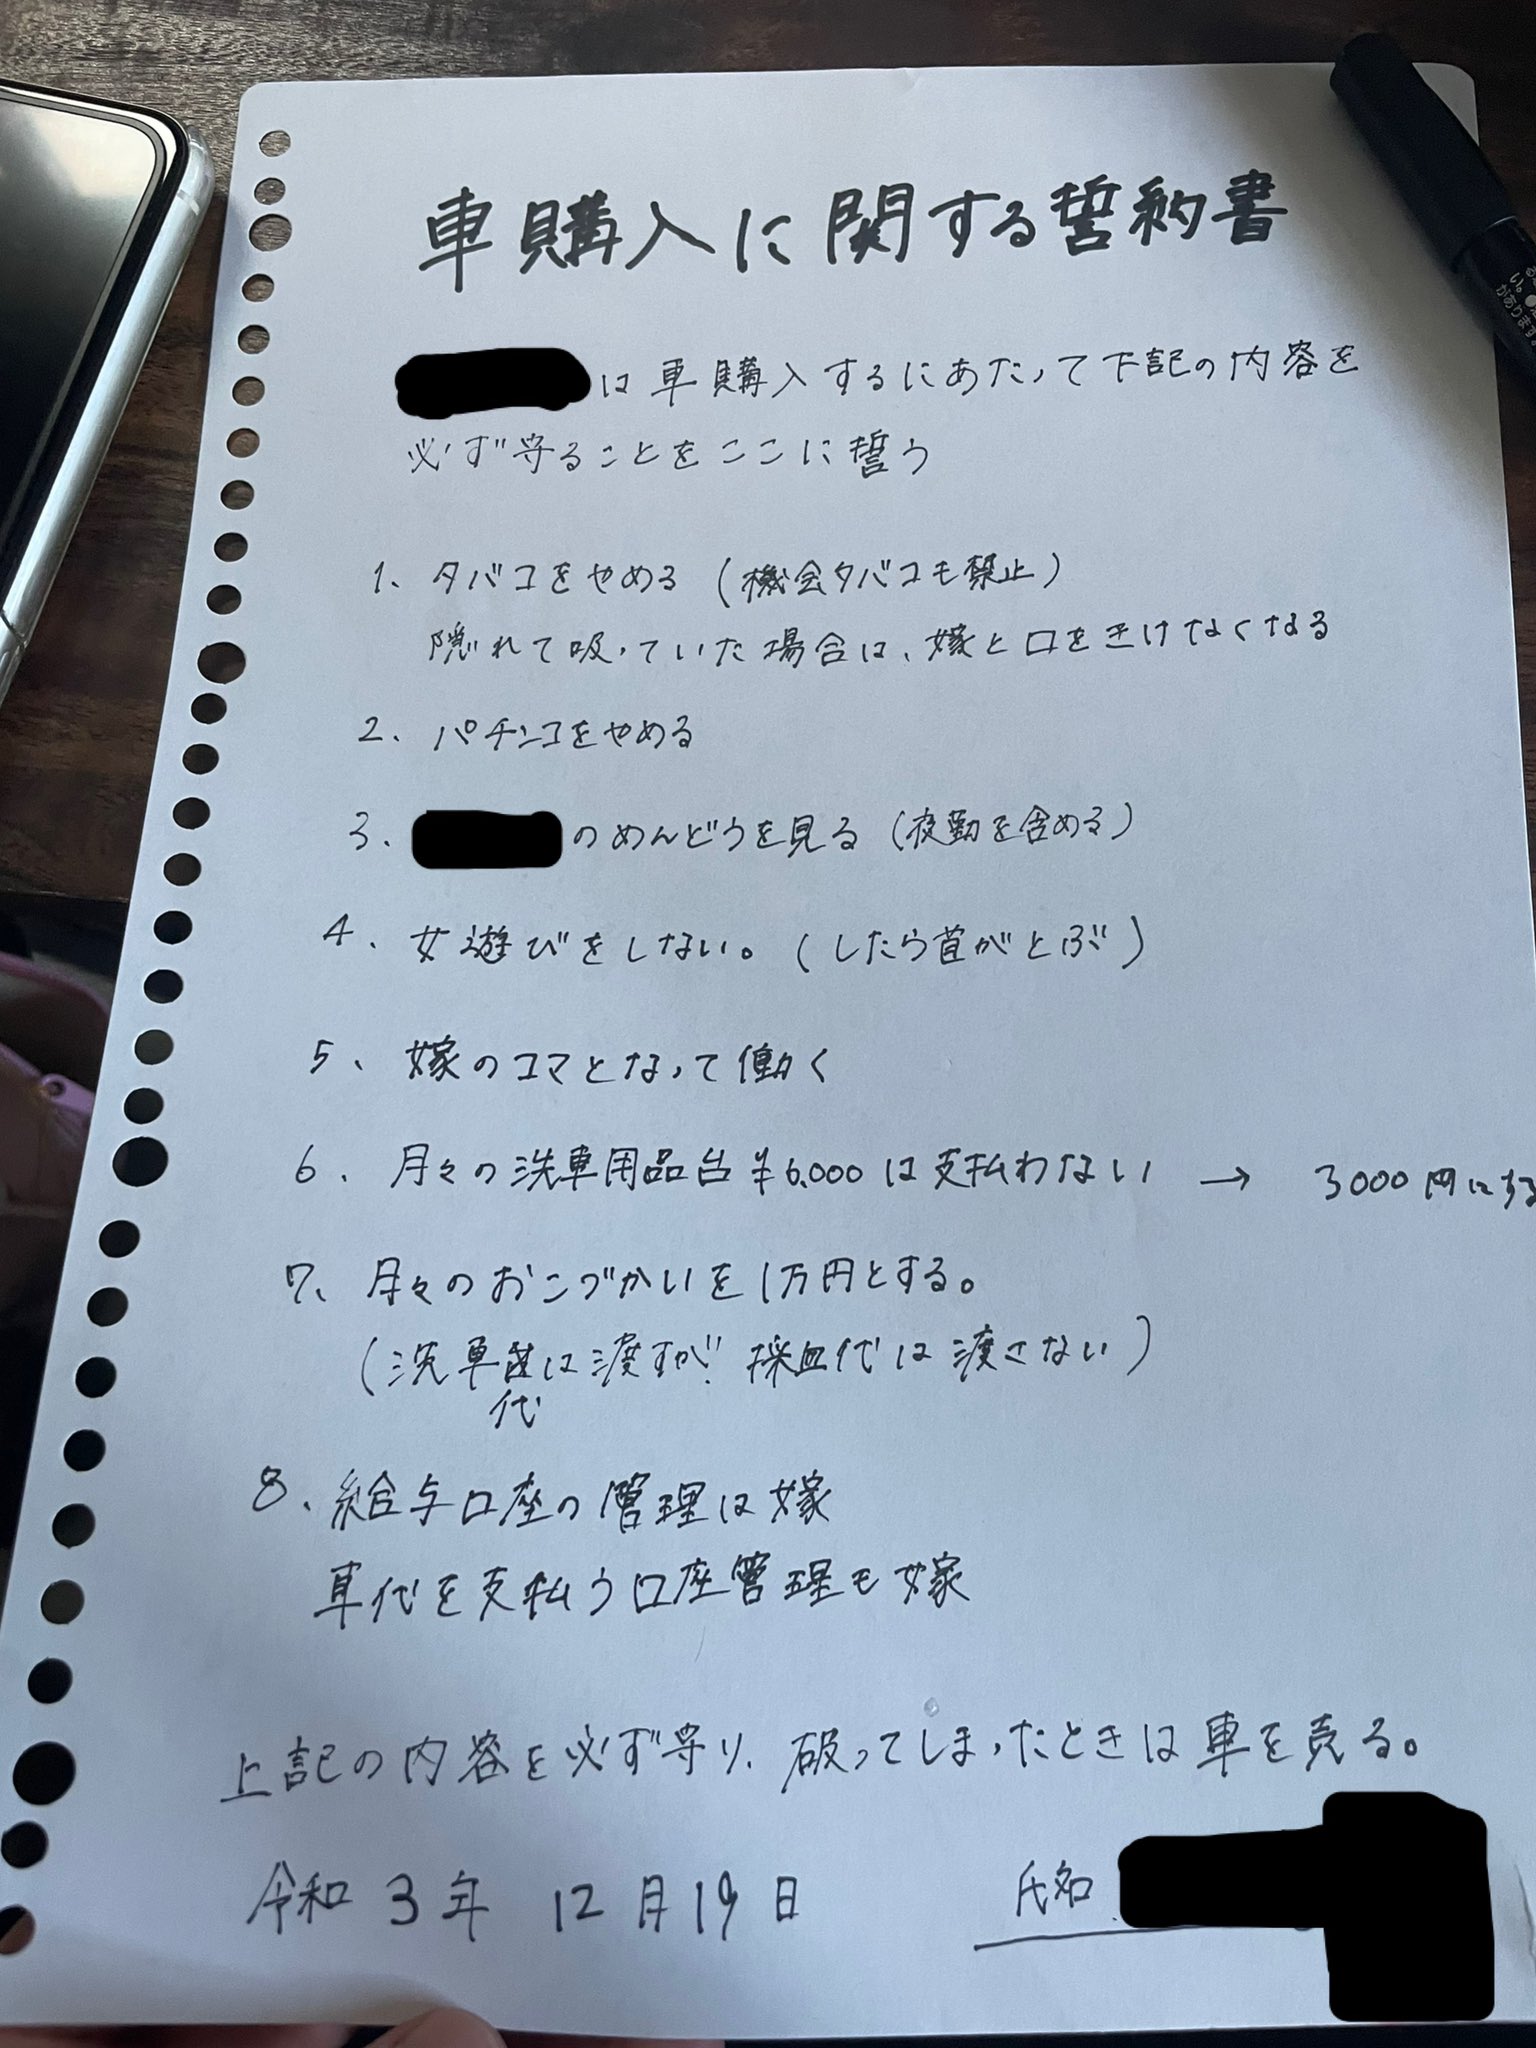 車購入に関する誓約書
は車購入するにあたって下記の内容を
必ず守ることをここに誓う
1、タバコをやめる(機会タバコも禁止)
隠れて吸っていた場合は、嫁と口をきけなくなる
2、パチンコをやめる
3、のめんどうを見る(夜勤を含める)
4、女遊びをしない。(したら首がとぶ)
5、嫁のコマとなって働く
6、月々の洗車用品台¥6,000は支払わない → 3000円にする
7、月々のおこづかいを1万円とする。
(洗車は渡すが、採血代は渡さない)
代
8、給与口座の管理は嫁
車代を支払う口座管理も嫁
上記の内容を必ず守り、破ってしまったときは車を売る。
令和3年 12月19日 氏名
い。
があります